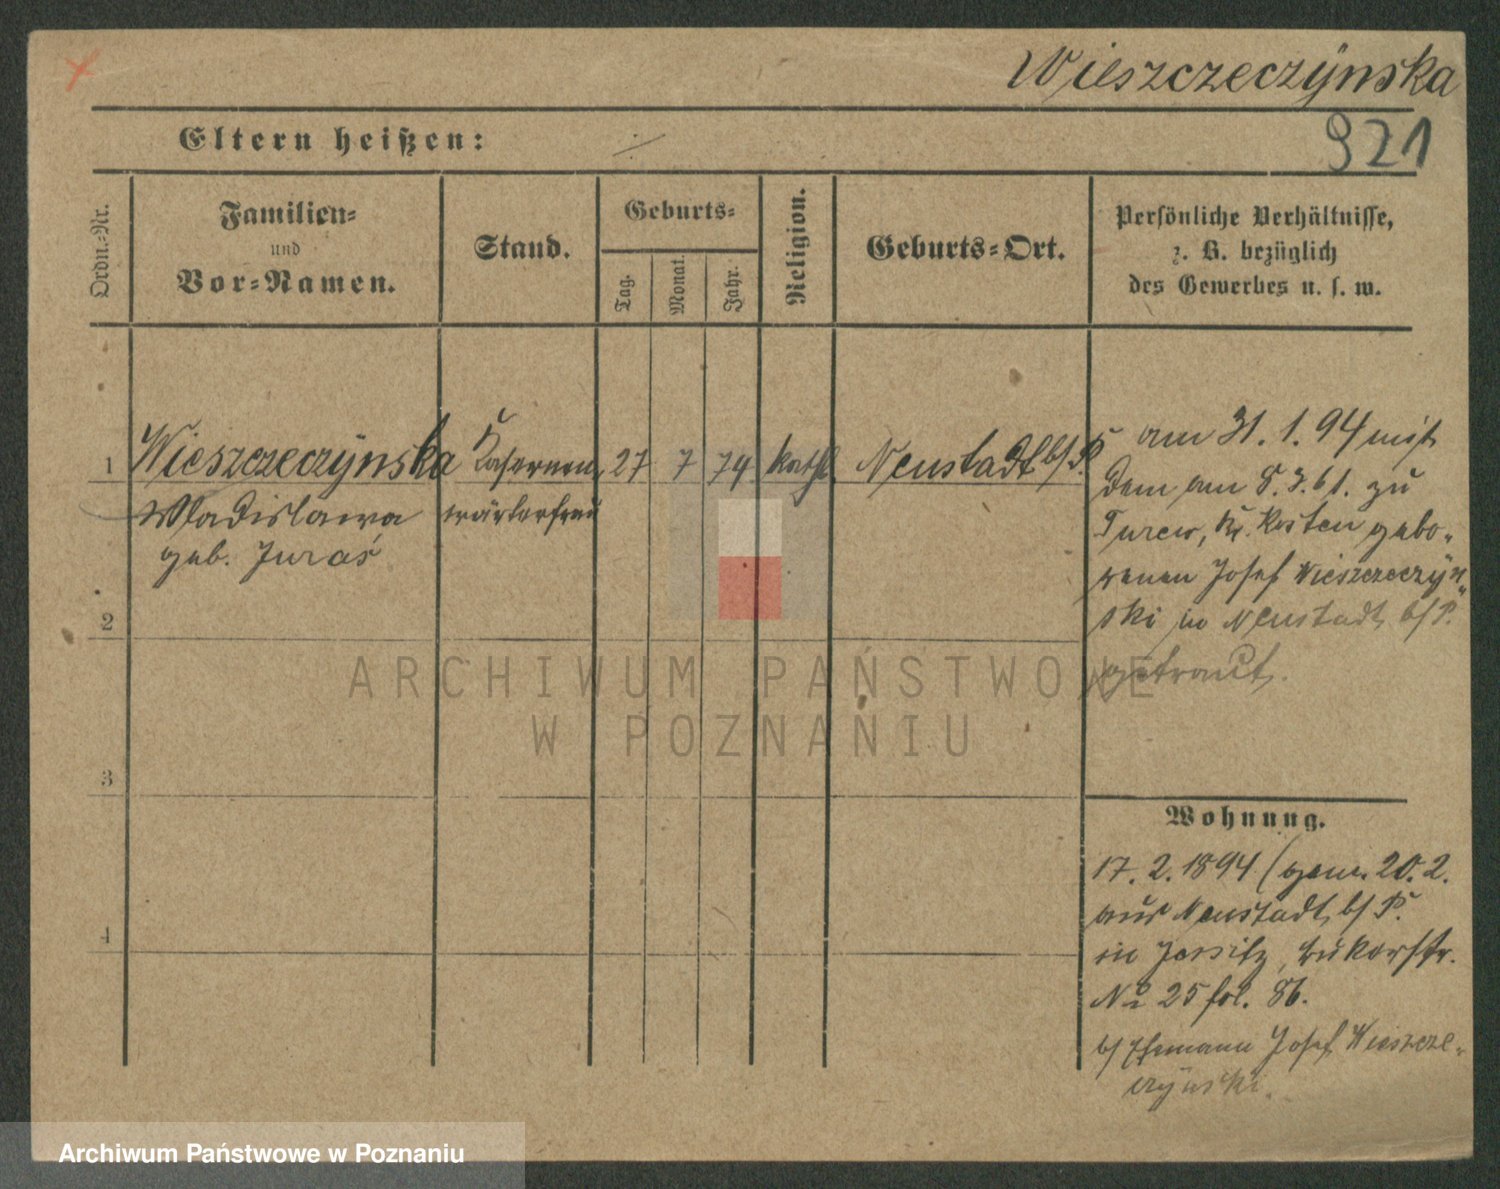 Wieszczeczÿnska
921
Eltern heißen: ./.
Ordn.-Nr.
Familien-
und
Vor-Namen.
Stand.
Geburts-
Tag.
Monat.
Jahr.
Religion.
Geburts-Ort.
Persönliche Verhältnisse,
z. B. bezüglich
des Gewerbes u. s. w.
1 Wieszczeczÿnska Kasernen 27 7 74 kath. Neustadt b/P.
Wladislawa wärterfrau
geb. Juraś
2
3
4
am 31. 1. 94 mit
dem am 8. 3. 61. zu
Turew, Kr. Kosten gebo-
renen Josef Wieszczeczÿn-
ski in Neustadt b/P.
getraut.
Wohnung.
17. 2. 1894 (gem. 20. 2.
aus Neustadt b/P.
in Jersitz, Bukerstr.
No 25 fol. 86.
b/ Ehemann Josef Wieszcze-
czÿnski.
ARCHIWUM PAŃSTWOWE
W POZNANIU
Archiwum Państwowe w Poznaniu